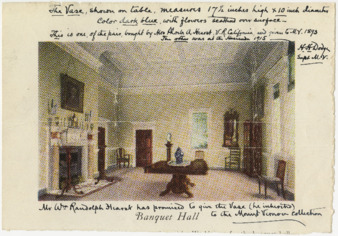 The Vase, shown on table, measures 17½ inches high x 10 inch diameter
Color dark blue, with flowers scattered over surface.
This is one of the pair bought by Mrs Phoebe A. Hearst, V.R. California and given to M.V. 1893
The other was at the Hacienda 1915
H. H. Dodge
Supt M.V.
Mr Wm Randolph Hearst has promised to give the Vase (he inherited)
to the Mount Vernon Collection
Banquet Hall